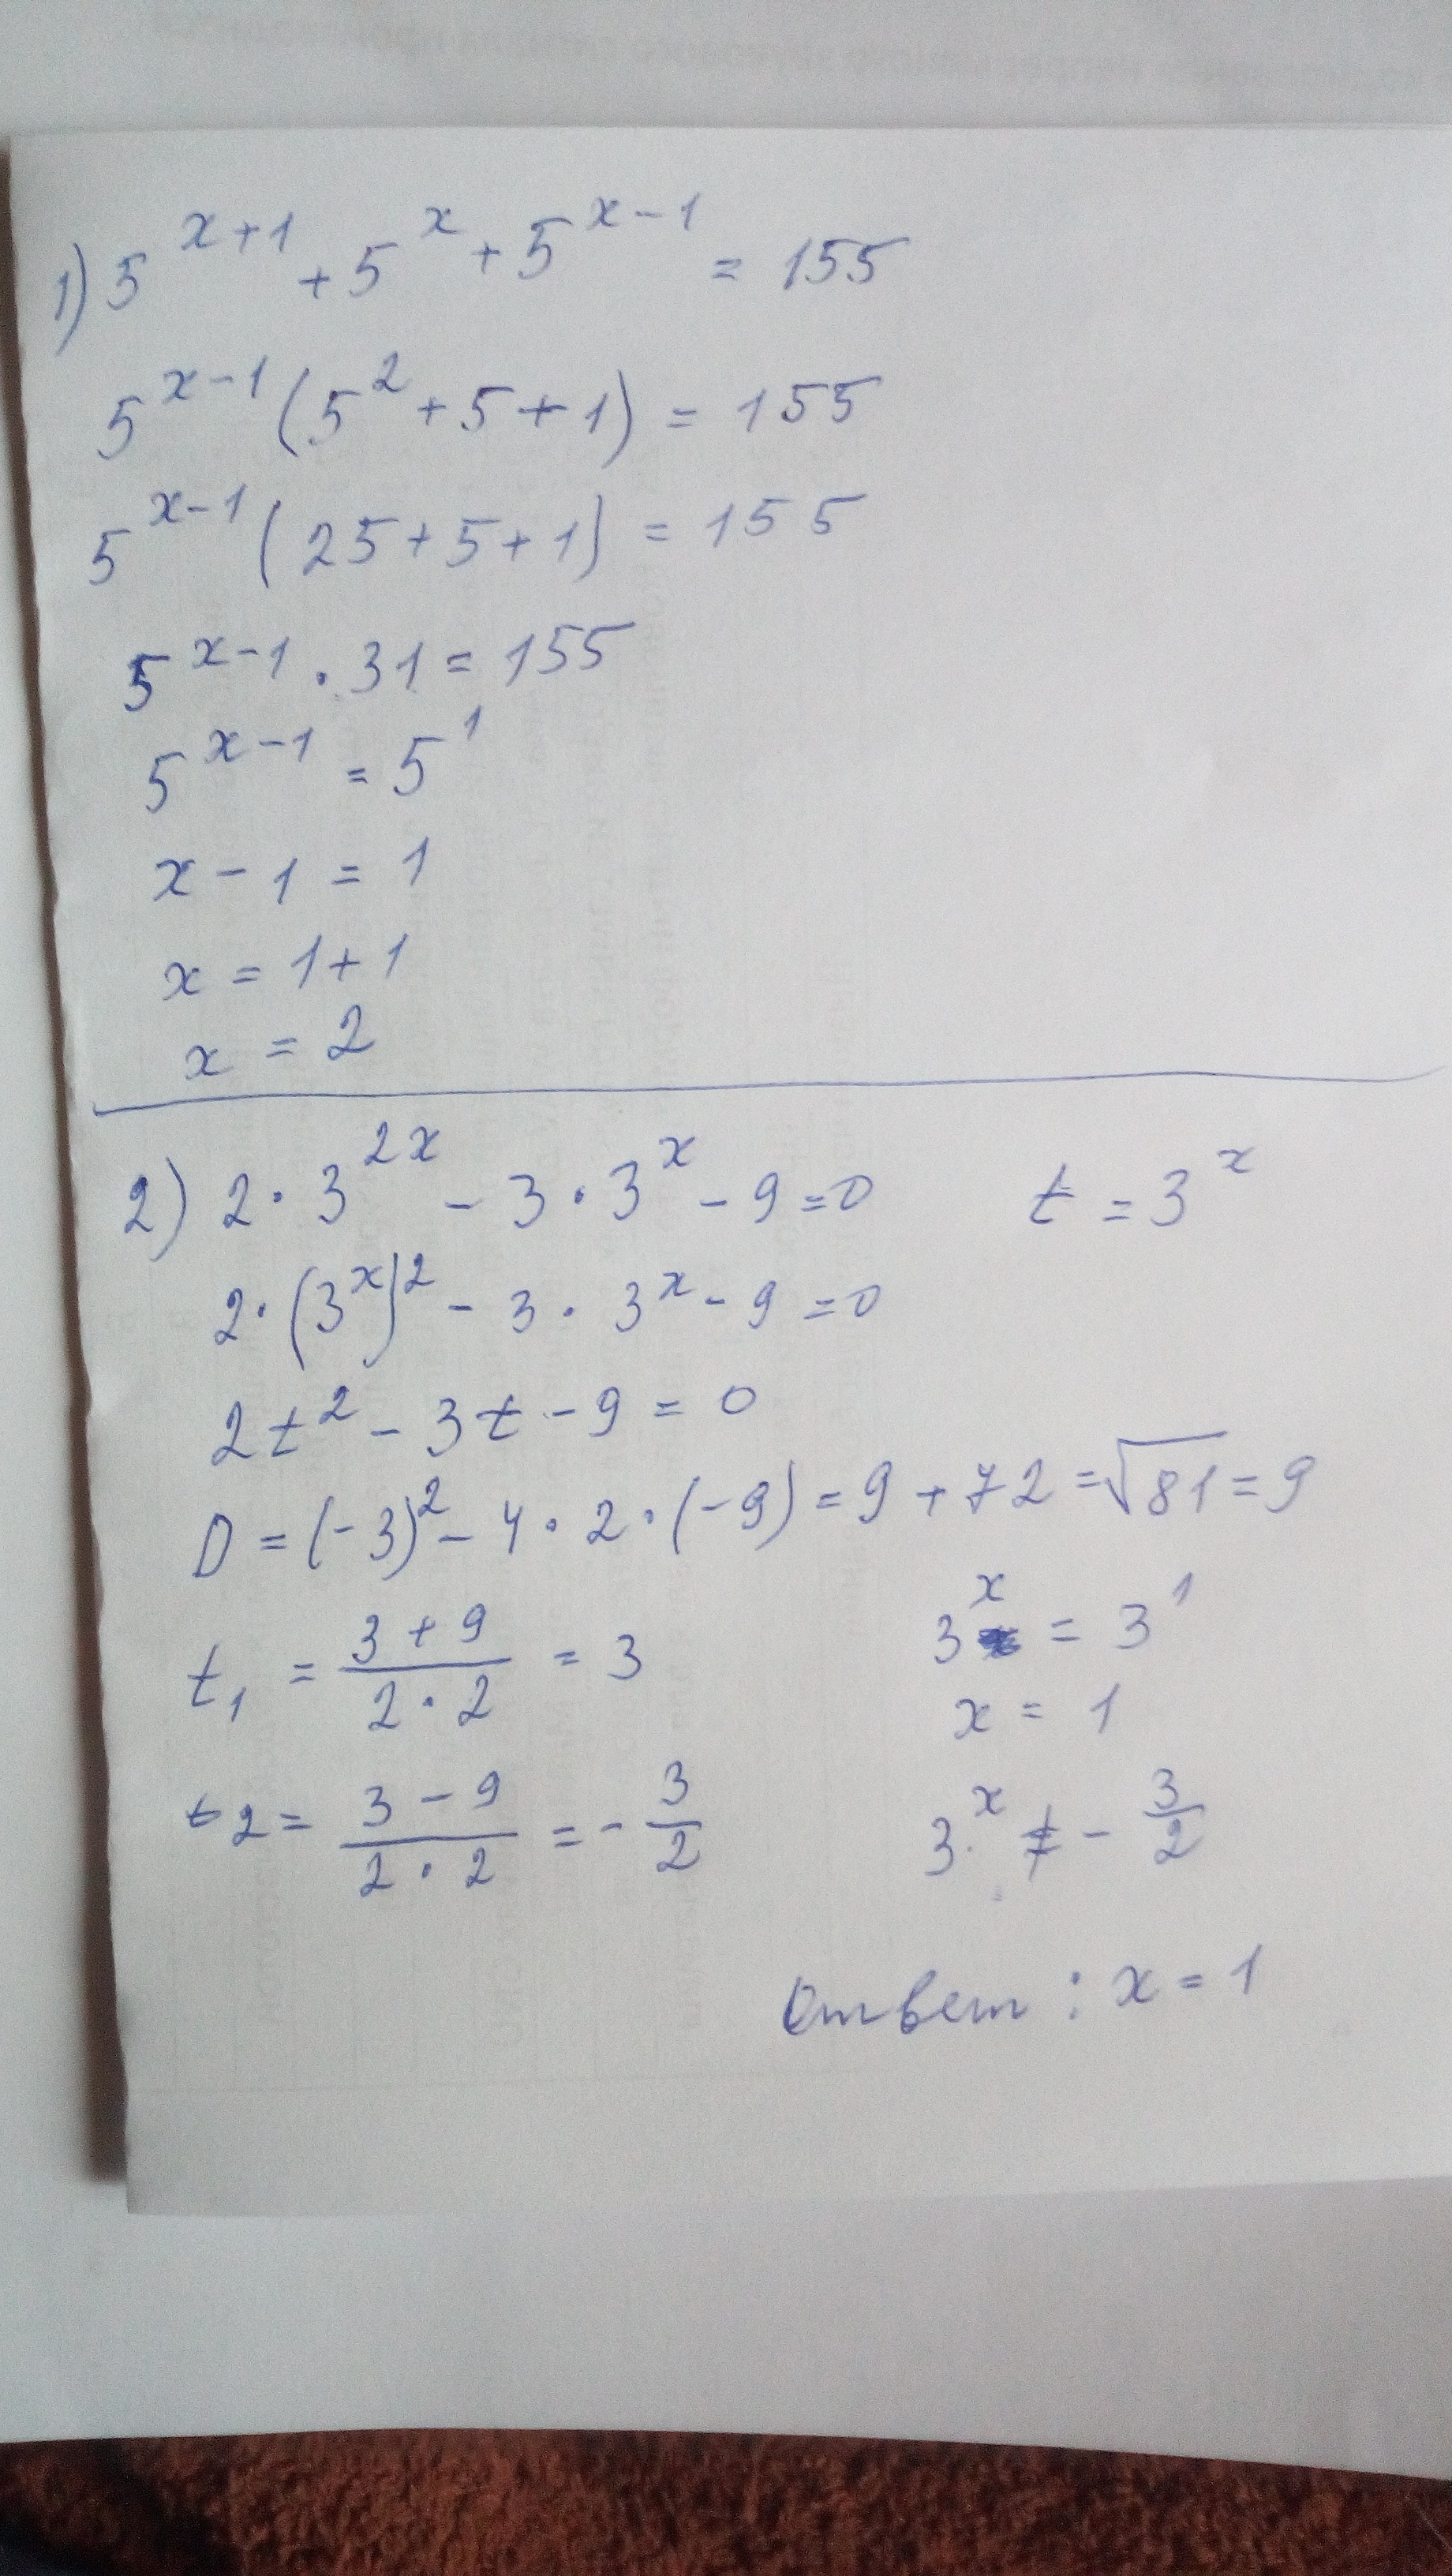 1) 5^{x+1} + 5^x + 5^{x-1} = 155
5^{x-1} (5^2 + 5 + 1) = 155
5^{x-1} (25 + 5 + 1) = 155
5^{x-1} · 31 = 155
5^{x-1} = 5^1
x - 1 = 1
x = 1 + 1
x = 2
2) 2 · 3^{2x} - 3 · 3^x - 9 = 0 t = 3^x
2 · (3^x)^2 - 3 · 3^x - 9 = 0
2t^2 - 3t - 9 = 0
D = (-3)^2 - 4 · 2 · (-9) = 9 + 72 = √81 = 9
t_1 = \frac{3 + 9}{2 · 2} = 3 3^x = 3^1
x = 1
t_2 = \frac{3 - 9}{2 · 2} = -\frac{3}{2} 3^x ≠ -\frac{3}{2}
Ответ : x = 1